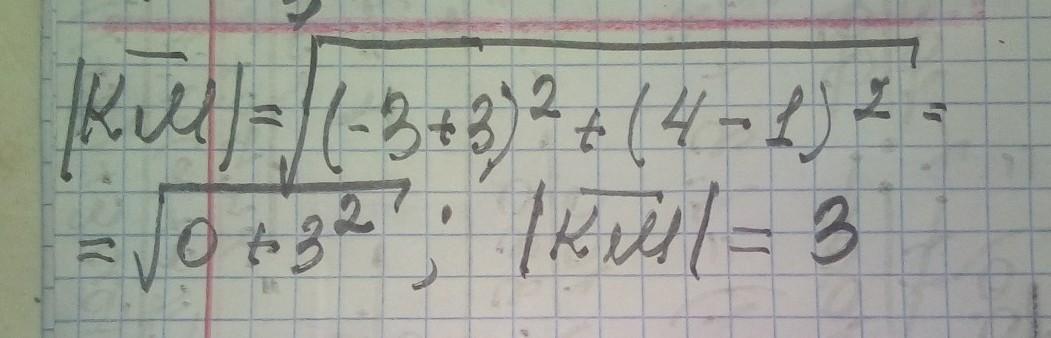 |K̅M̅| = √((-3+3)² + (4-1)²) =
= √(0 + 3²) ; |K̅M̅| = 3